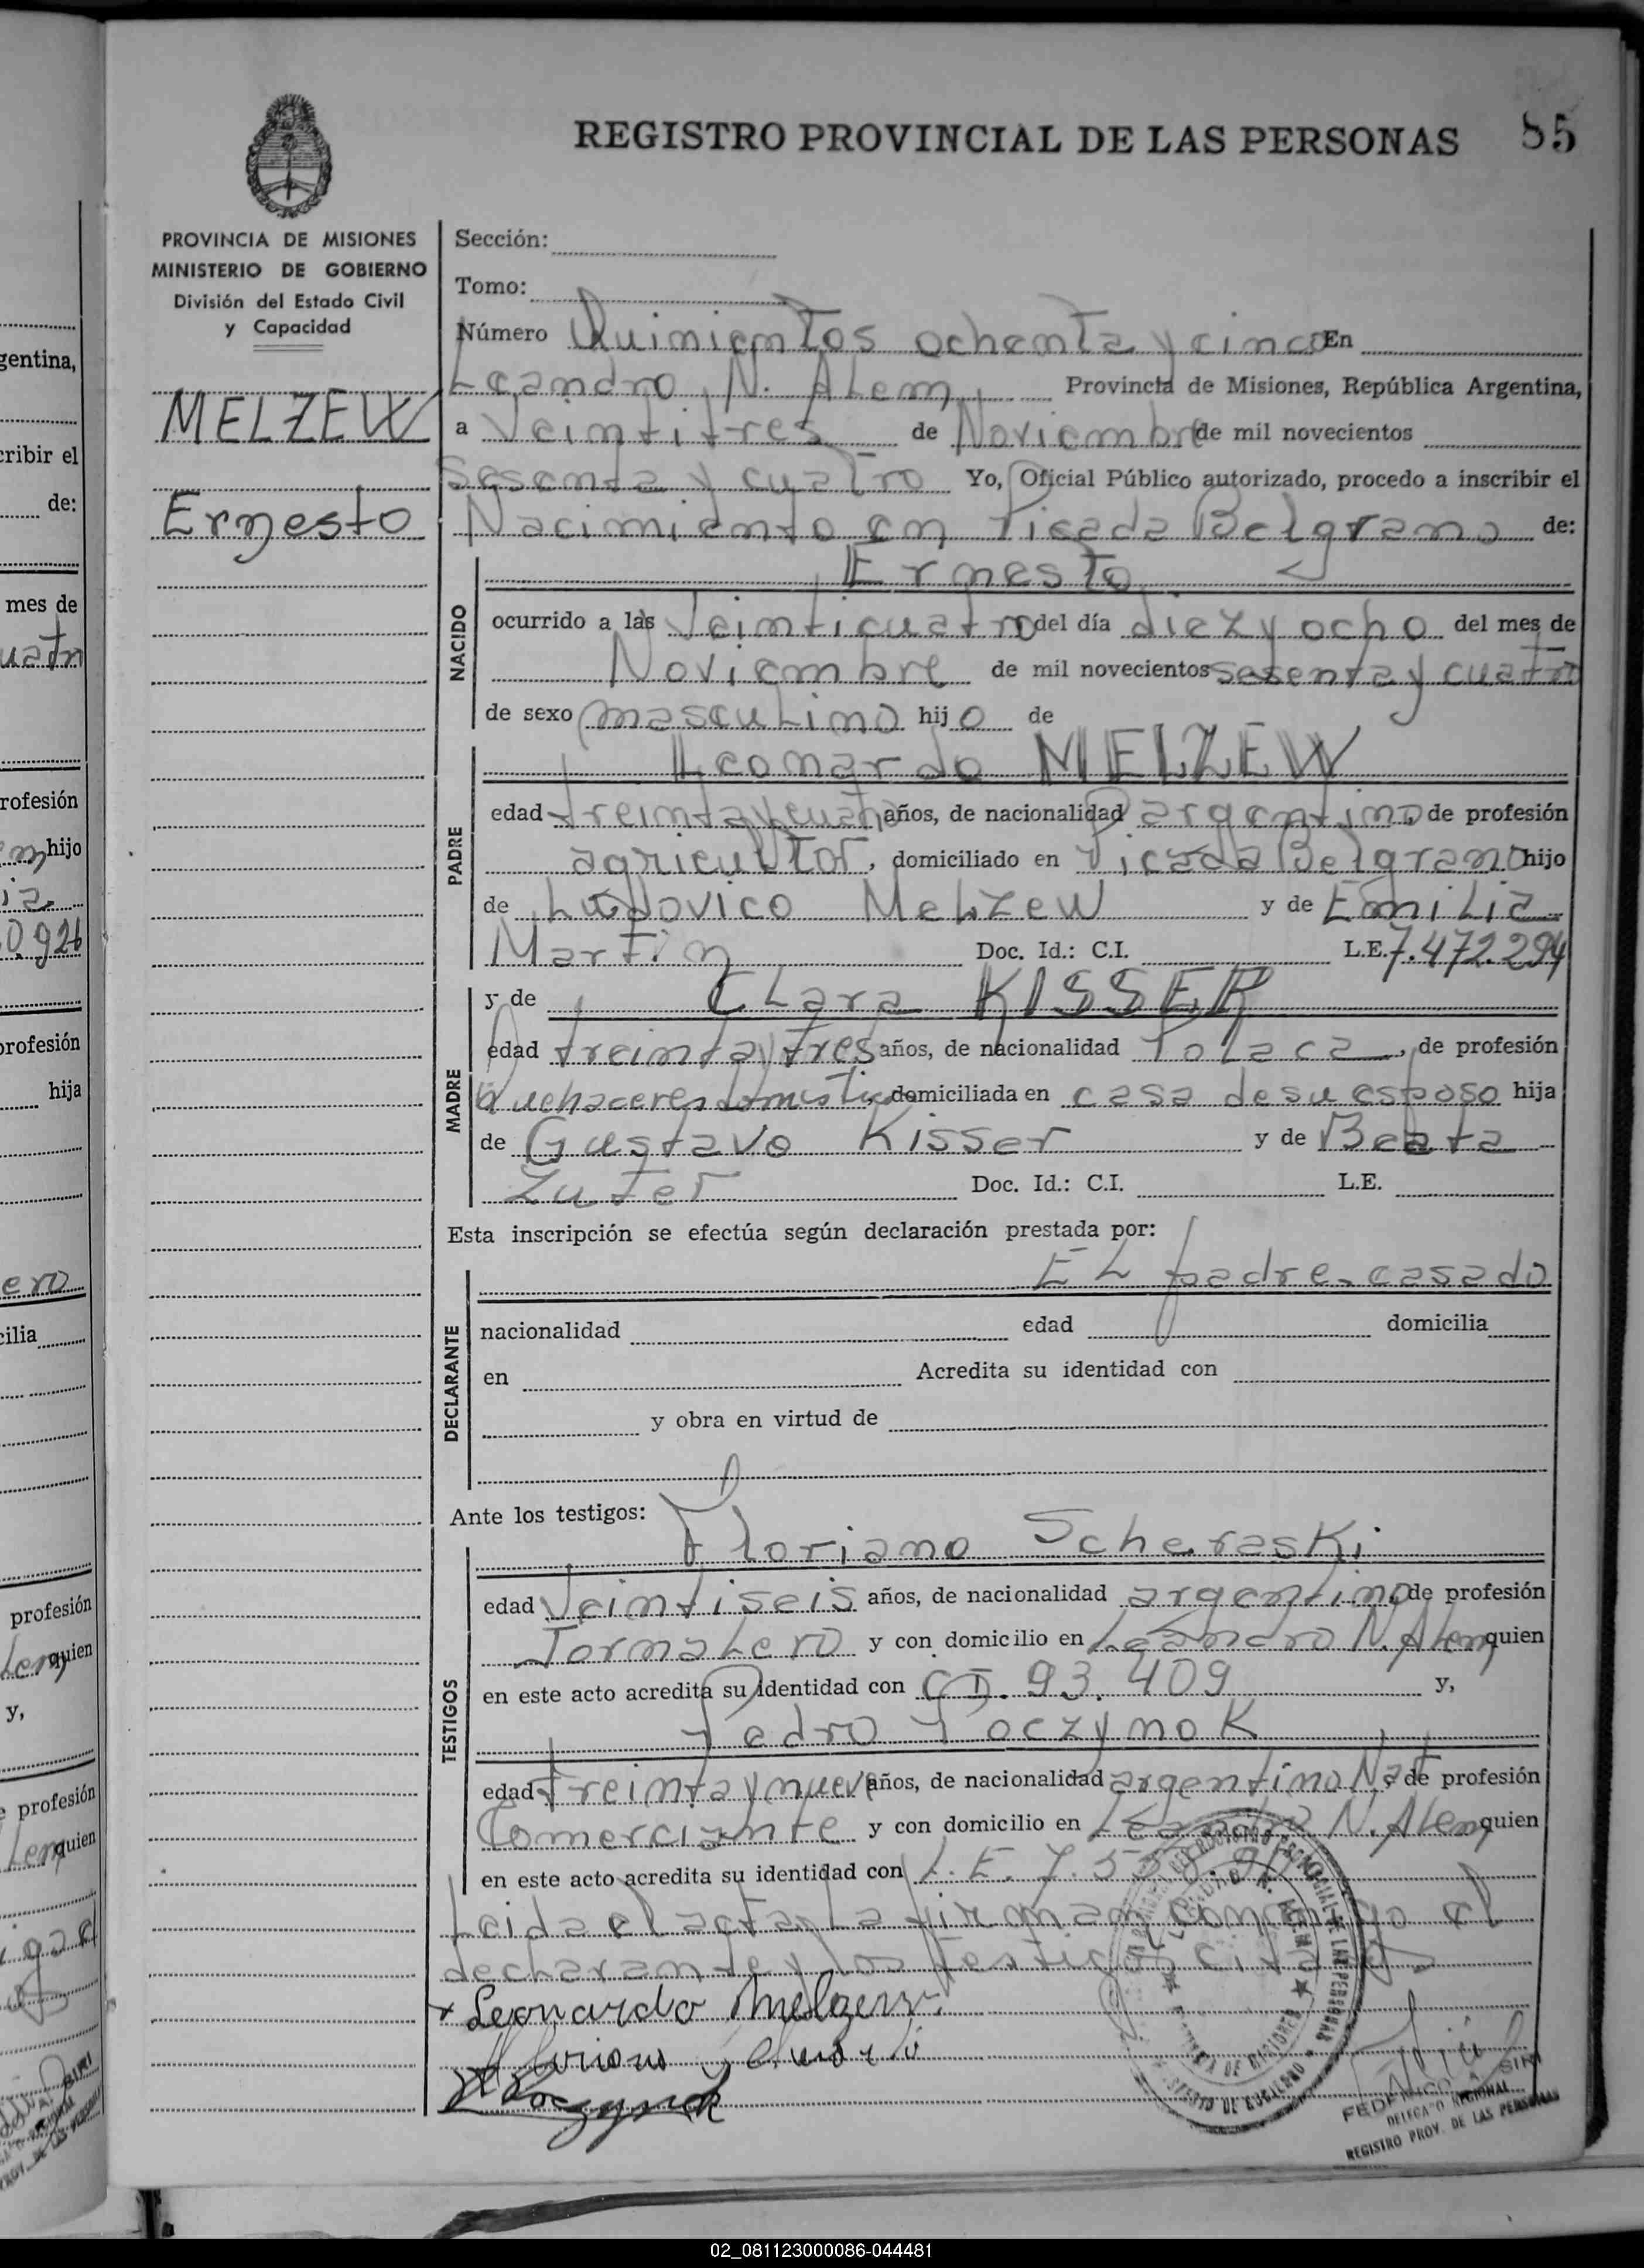 REGISTRO PROVINCIAL DE LAS PERSONAS 85
PROVINCIA DE MISIONES
MINISTERIO DE GOBIERNO
División del Estado Civil
y Capacidad
MELZEW
Ernesto
Sección:
Tomo:
Número Quinientos ochenta y cinco En
Leandro N. Alem Provincia de Misiones, República Argentina,
a Veintitres de Noviembre de mil novecientos
sesenta y cuatro Yo, Oficial Público autorizado, procedo a inscribir el
Nacimiento en Picada Belgrano de:
NACIDO
Ernesto
ocurrido a las Veinticuatro del día diez y ocho del mes de
Noviembre de mil novecientos sesenta y cuatro
de sexo masculino hijo de
PADRE
Leonardo MELZEW
edad treinta y cuatro años, de nacionalidad argentino, de profesión
agricultor, domiciliado en Picada Belgrano hijo
de Ludovico Melzew y de Emilia
Martin Doc. Id.: C.I. L.E. 7.472.294
MADRE
y de Clara KISSER
edad treinta y tres años, de nacionalidad Polaca, de profesión
Quehaceres domestico, domiciliada en casa de su esposo hija
de Gustavo Kisser y de Beata
Zufer Doc. Id.: C.I. L.E.
Esta inscripción se efectúa según declaración prestada por:
DECLARANTE
El padre-casado
nacionalidad edad domicilia
en Acredita su identidad con
y obra en virtud de
Ante los testigos:
TESTIGOS
Floriano Scheraski
edad Veintiseis años, de nacionalidad argentino, de profesión
Jornalero y con domicilio en Leandro N. Alem quien
en este acto acredita su identidad con C.I. 93.409 y,
Pedro Poczynok
edad treinta y nueve años, de nacionalidad argentino Nat, de profesión
Comerciante y con domicilio en Leandro N. Alem quien
en este acto acredita su identidad con L.E. 7.
Leida el acta, la firman conmigo el
declarante y los testigos citados
Leonardo Melzew
REGISTRO PROV. DE LAS PERSONAS
02_081123000086-044481